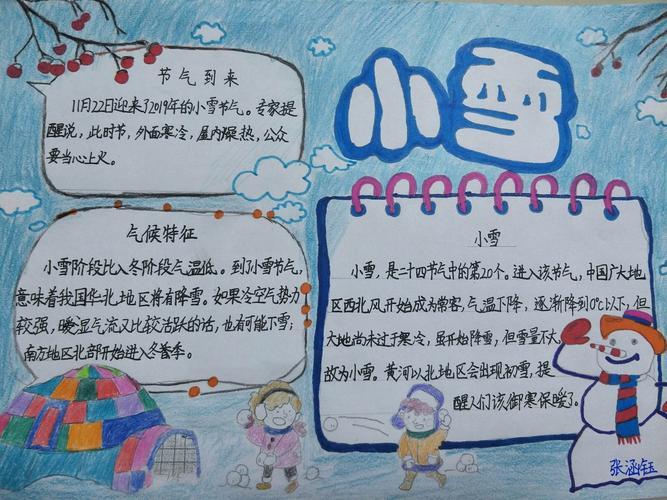 小雪
节气到来
11月22日迎来了2019年的小雪节气。专家提
醒说，此时节，外面寒冷，屋内燥热，公众
要当心上火。
气候特征
小雪阶段比入冬阶段气温低。到了小雪节气，
意味着我国华北地区将有降雪。如果冷空气势力
较强，暖湿气流又比较活跃的话，也有可能下雪；
南方地区北部开始进入冬季。
小雪
小雪，是二十四节气中的第20个。进入该节气，中国广大地
区西北风开始成为常客，气温下降，逐渐降到0℃以下，但
大地尚未过于寒冷，虽开始降雪，但雪量不大，
故为小雪。黄河以北地区会出现初雪，提
醒人们该御寒保暖了。
张涵钰